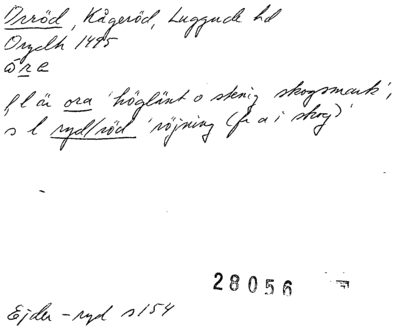 Orröd, Kågeröd, Luggude hd
Orydh 1495
öre
f l är ora 'höglänt o stenig skogsmark',
s l ryd/röd 'röjning (fr a i skog)'
28056
Ejder - ryd s 154